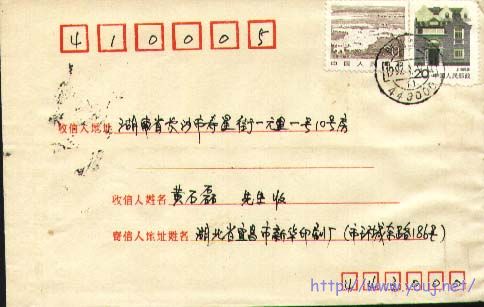 410005
中国人民邮政
20
中国人民邮政
443000
收信人地址 湖南省长沙市寿星街一元里一号10号房
收信人姓名 黄石磊 先生收
寄信人地址姓名 湖北省宜昌市新华印刷厂(市环城东路186号)
443000
http://www.youj.net/